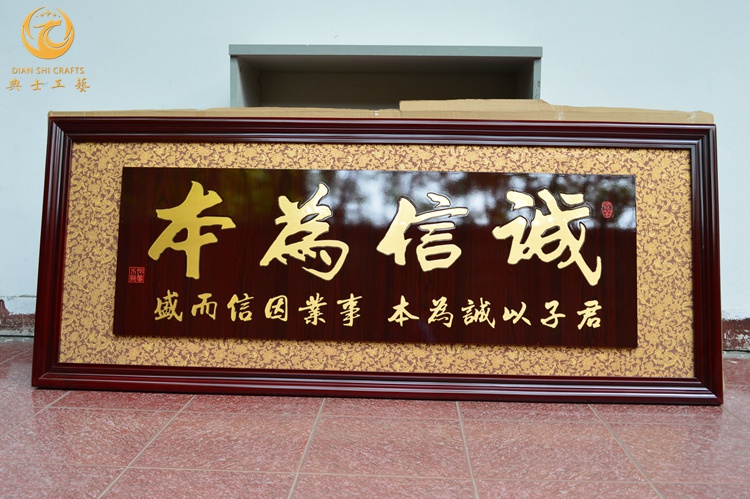 DIAN SHI CRAFTS
典士工藝
誠信為本
君子以誠為本 事業因信而盛